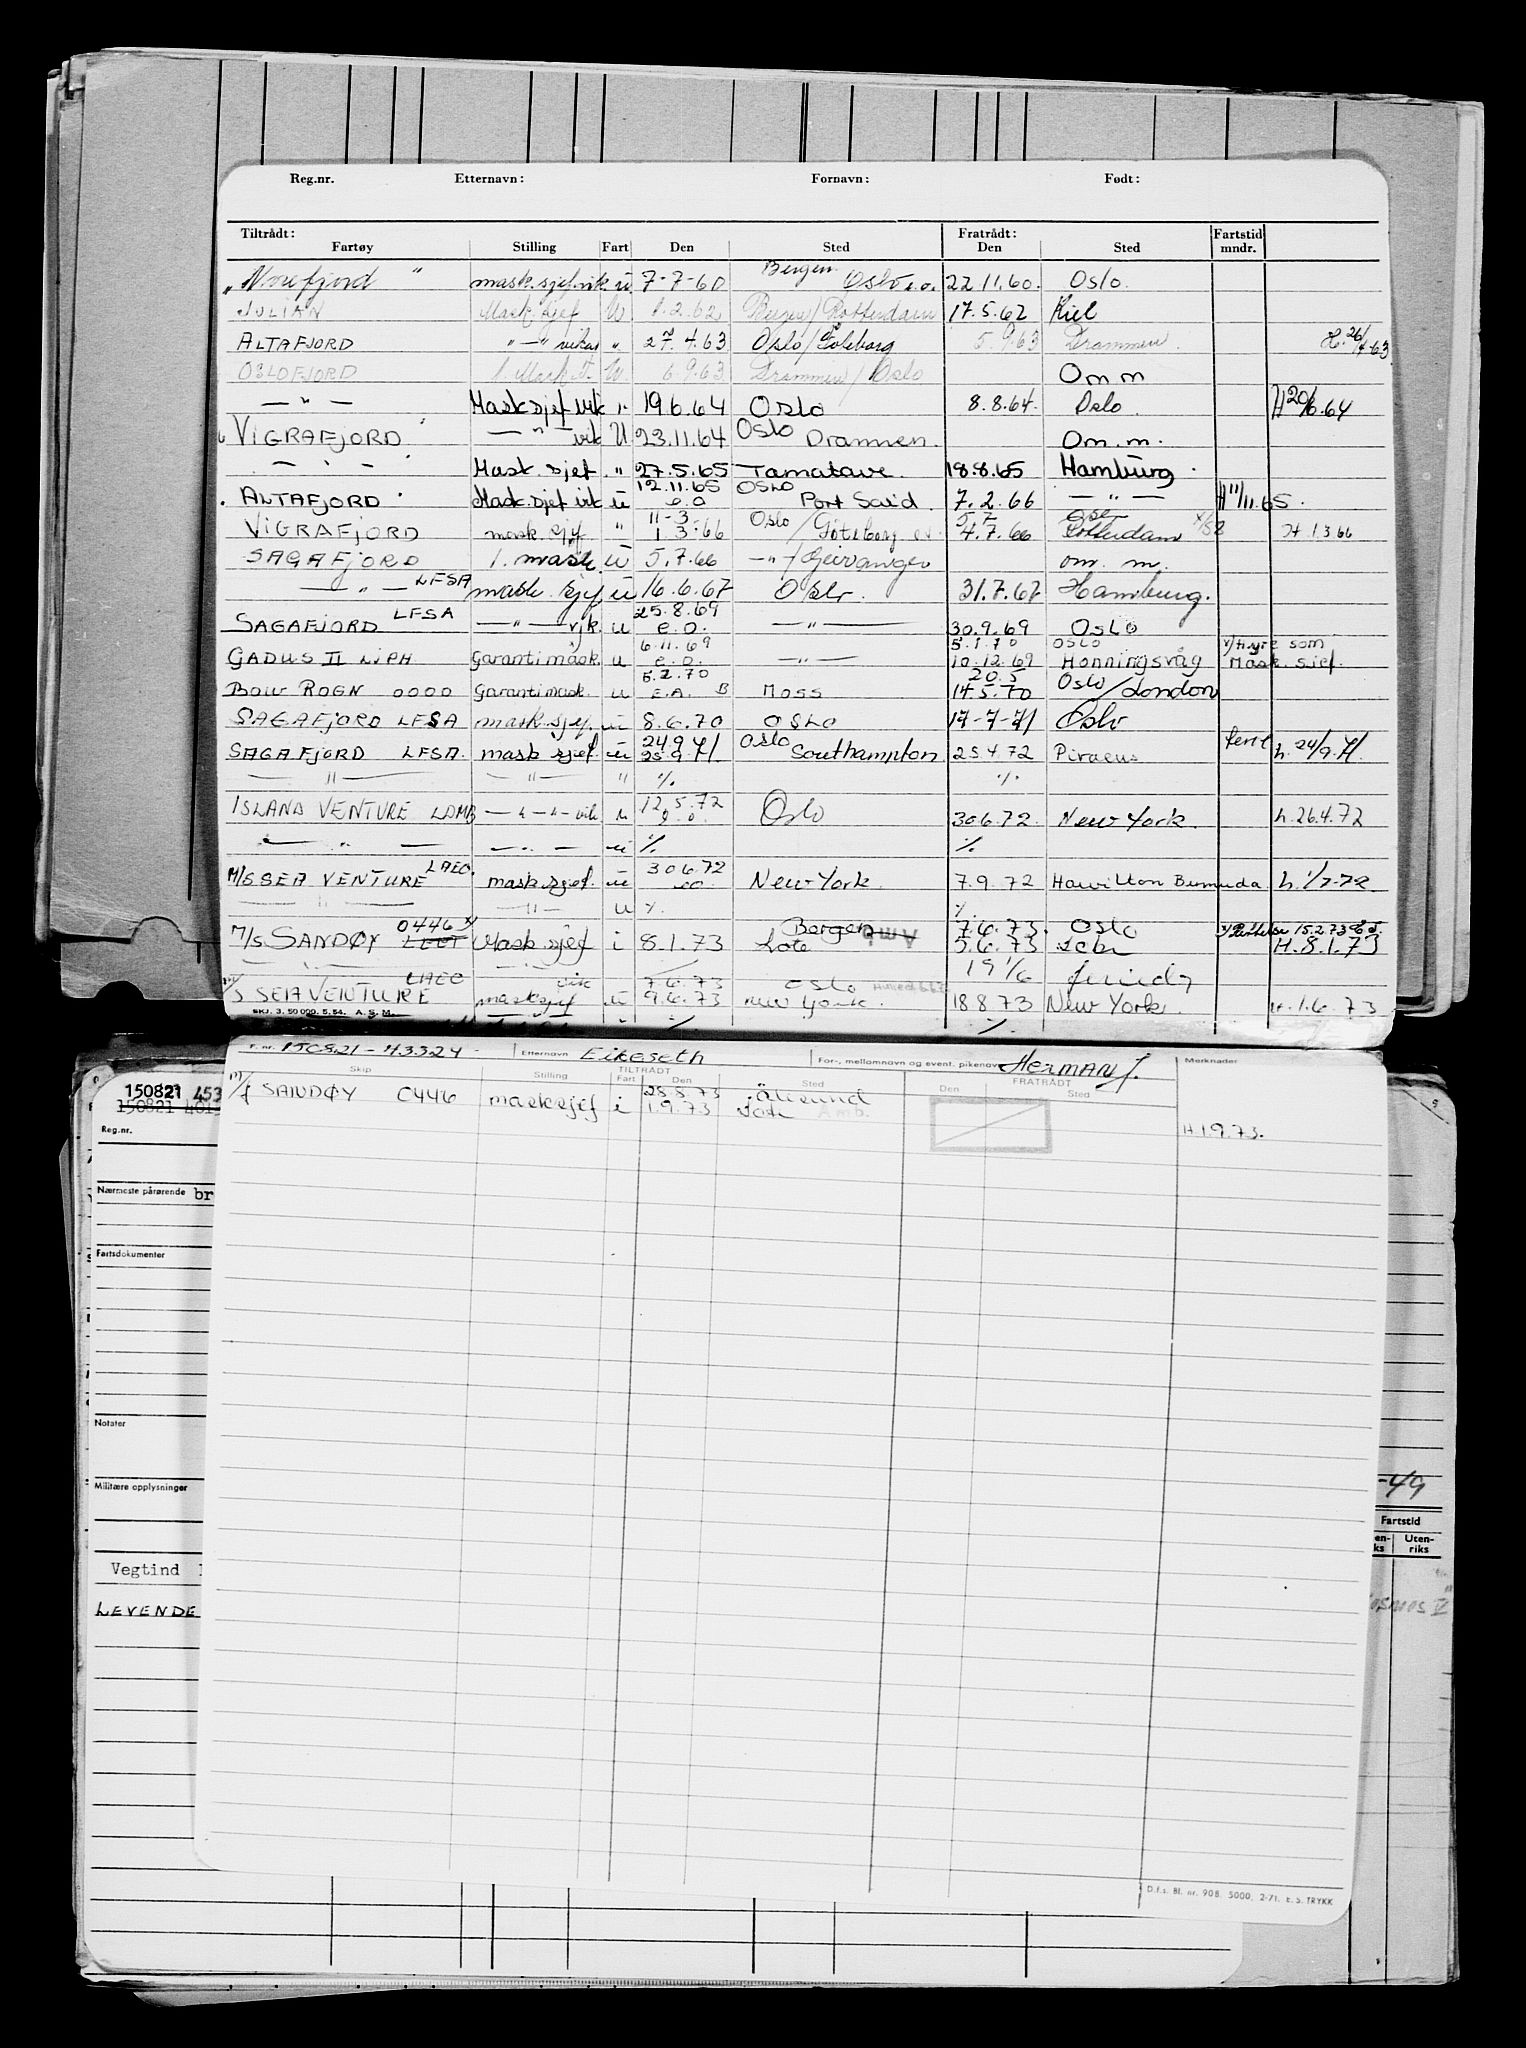 Reg.nr. Etternavn: Fornavn: Født:
Tiltrådt: Fratrådt: Fartstid
Fartøy Stilling Fart Den Sted Den Sted mndr.
Bergen
„Norefjord " mask.sjef.vik. u. 7-7-60 Oslo e.o. 22.11.60. Oslo.
JULIAN Mask.sjef U 1.2.62 Bergen/Rotterdam 17.5.62 Kiel
ALTAFJORD " — " vikar " 27.4.63 Oslo/Göteborg 5.9.63 Drammen. H. 26/4-63
OSLOFJORD 1. Mask. U. 6.9.63 Drammen/Oslo Om m
— " — Mask sjef vik ". 19.6.64 Oslo 8.8.64. Oslo. H 20/6.64
VIGRAFJORD — " — vik U 23.11.64 Oslo Drammen. Om. m.
— " — Mask. sjef. " 27.5.65 Tamatave. 18.8.65 Hamburg.
12.11.65 OSLO
ALTAFJORD Mask.sjef vik u e.o Port Said. 7.2.66 — " — H 11/11.65.
11-3- Oslo 5.7 Oslo
VIGRAFJORD mask. sjef " 1 3-66 /Göteborg e.o. 4.7.66 Rotterdam H 1.3 66
SAGAFJORD 1. mask. u 5.7.66 — " —/Geiranger om. m.
— " — LFSA mask. sjef u 16.6.67 Oslo. 31.7.67 Hamburg.
25.8.69
SAGAFJORD LFSA — " — vik. u e.o. — " — 30.9.69 OSLO
6.11.69 5.1.70 OSLO x/Hyre som
GADUS II LIPH Garantimask. u e.o. — " — 10.12.69 Honningsvåg Mask. sjef.
5.2.70 20.5 Oslo
BOW ROGN 0000 Garantimask. u E.A. B Moss 14.5.70 /London
SAGAFJORD LFSA mask.sjef. u 8.6.70 OSLO 17-7-71 Oslo
24.9 Oslo
SAGAFJORD LFSA. mask sjef. u 25.9.71. Southampton 25.4.72 Piraeus h. 24/9.71.
— " — — " — " % %
12.5.72
ISLAND VENTURE LDMB — " — " — vik u e.o. Oslo 30.6.72. New York. h.26.4.72
— " — — " — u % %
LAEC. 30.6.72
M/S SEA VENTURE mask.sjef. u e.o. New York. 7.9.72 Hamilton Bermuda. h. 1/7-72.
— " — — " — u % %
0446 x/ Bergen 7.6.73. Oslo
M/S. SANDØY LEET Mask sjef i 8.1.73 Lote Amb 5.6.73 H.8.1.73
— " — 19 1/6
LAEC vik 7.6.73 Oslo
S SEA VENTURE masksjef u 9.6.73 new york. 18.8.73 New York. H.1.6.73
SKJ. 3. 50 000. 5. 54. A. S. M. % %
F. nr. 150821-43324 Etternavn Eikeseth For-, mellomnavn og event. pikenavn HERMAN J. Merknader
Skip TILTRÅDT FRATRÅDT
Stilling Fart Den Sted Den Sted
28.8.73 Ålesund
m/f SANDØY 0446 masksjef i 1.9.73 Lote Amb.
H.1.9.73.
150821 453
150821 401
Reg.nr.
Nærmeste pårørende br
Fartsdokumenter
Notater
Militære opplysninger
-49
Fartstid
en-ks Uten-riks
Vegtind
LEVENDE
KOSMOS V
D.f.s. Bl. nr. 908. 5000. 2-71. E. S. TRYKK